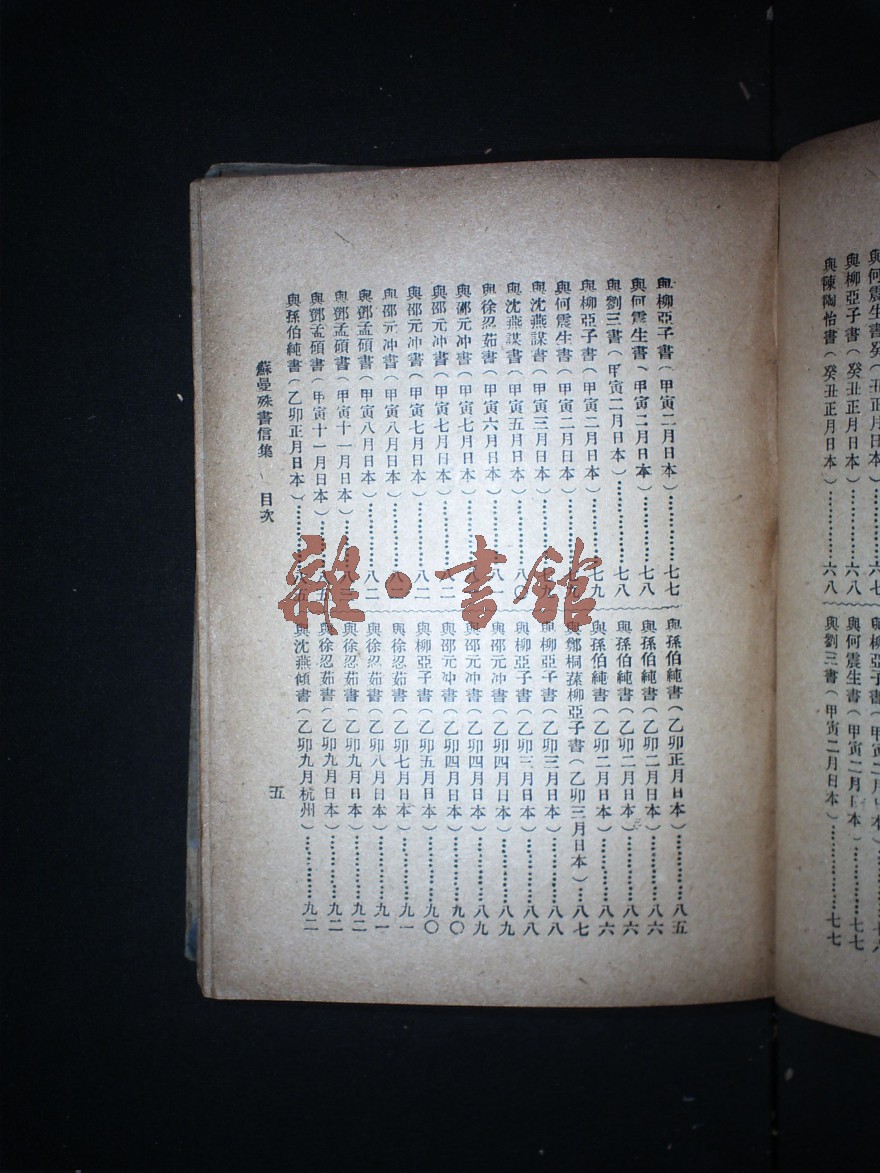 與何震生書（癸丑正月日本）…………六七
與柳亞子書（癸丑正月日本）…………六八
與陳陶怡書（癸丑正月日本）…………六八
與柳亞子書（甲寅二月日本）…………
與何震生書（甲寅二月日本）…………七七
與劉三書（甲寅二月日本）…………七七
與柳亞子書（甲寅二月日本）…………七七
與何震生書（甲寅二月日本）…………七八
與劉三書（甲寅二月日本）…………七八
與柳亞子書（甲寅二月日本）…………七九
與何震生書（甲寅二月日本）…………
與沈燕謀書（甲寅三月日本）…………
與沈燕謀書（甲寅五月日本）…………八〇
與徐忍茹書（甲寅六月日本）…………八一
與邵元冲書（甲寅七月日本）…………
與邵元冲書（甲寅七月日本）…………八二
與邵元冲書（甲寅七月日本）…………八二
與邵元冲書（甲寅八月日本）…………八二
與鄧孟碩書（甲寅八月日本）…………八二
與鄧孟碩書（甲寅十一月日本）…………八三
與鄧孟碩書（甲寅十一月日本）…………八五
與孫伯純書（乙卯正月日本）…………八五
與孫伯純書（乙卯正月日本）…………八五
與孫伯純書（乙卯二月日本）…………八六
與孫伯純書（乙卯二月日本）…………八六
與孫伯純書（乙卯二月日本）…………八六
與鄭桐蓀柳亞子書（乙卯三月日本）……八七
與柳亞子書（乙卯三月日本）…………八八
與柳亞子書（乙卯三月日本）…………八八
與邵元冲書（乙卯四月日本）…………八九
與邵元冲書（乙卯四月日本）…………八九
與邵元冲書（乙卯四月日本）…………九〇
與柳亞子書（乙卯五月日本）…………九〇
與徐忍茹書（乙卯七月日本）…………九一
與徐忍茹書（乙卯八月日本）…………九一
與徐忍茹書（乙卯九月日本）…………九二
與徐忍茹書（乙卯九月日本）…………九二
與沈燕傾書（乙卯九月杭州）…………九二
蘇曼殊書信集 目次
五
雜·書館